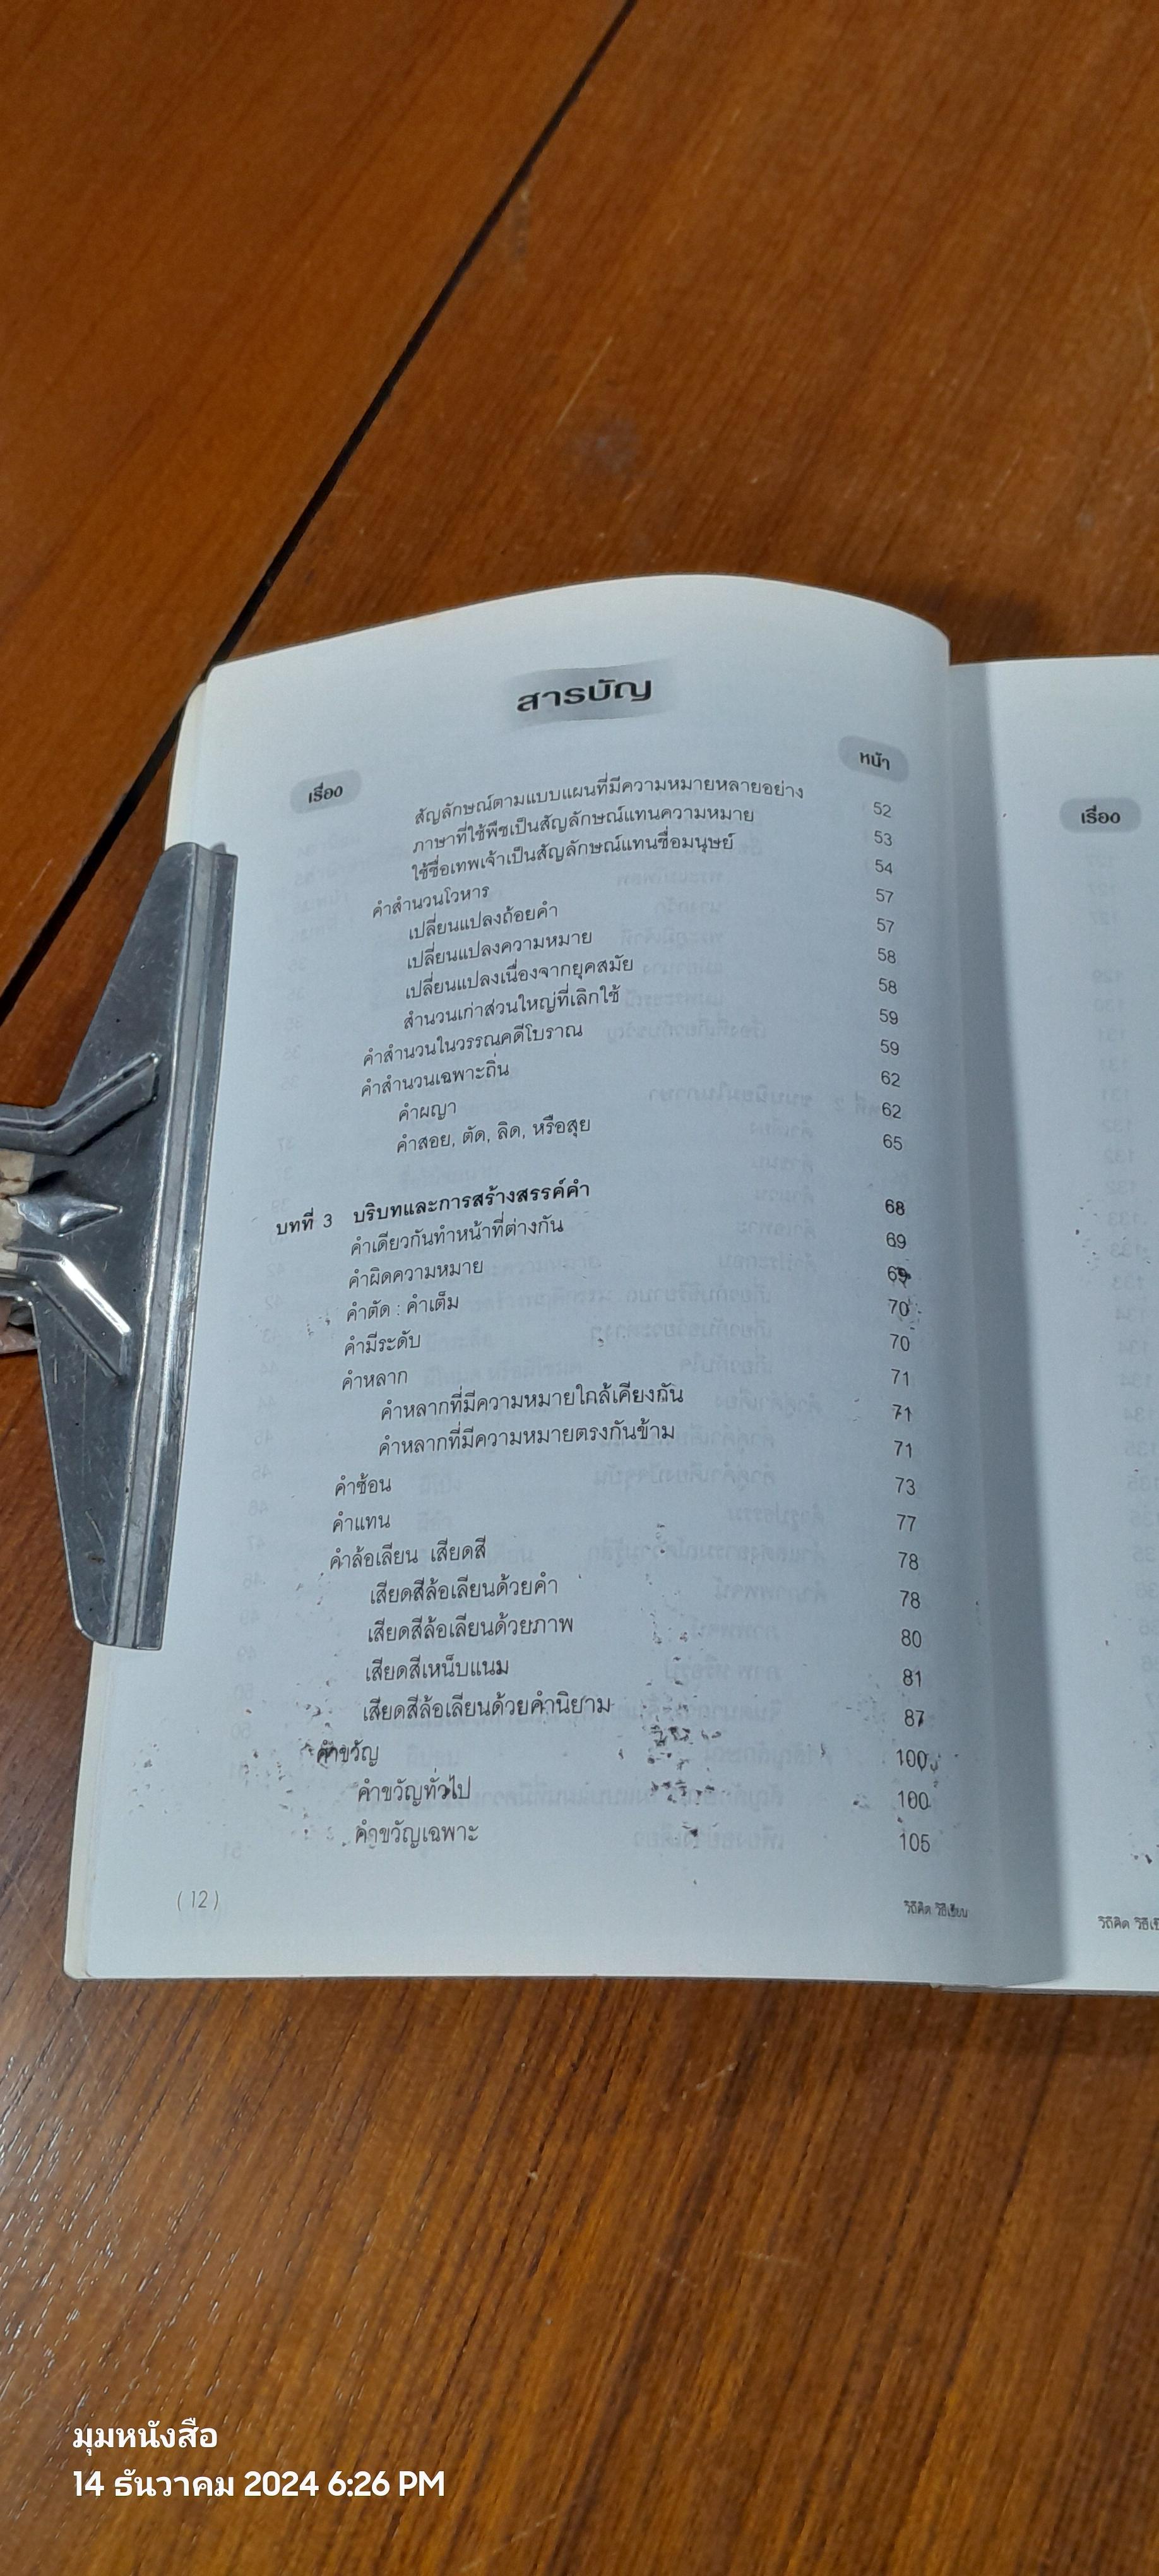 สารบัญ
เรื่อง หน้า
สัญลักษณ์ตามแบบแผนที่มีความหมายหลายอย่าง 52
ภาษาที่ใช้พืชเป็นสัญลักษณ์แทนความหมาย 53
ใช้ชื่อเทพเจ้าเป็นสัญลักษณ์แทนชื่อมนุษย์ 54
คำสำนวนโวหาร 57
เปลี่ยนแปลงถ้อยคำ 57
เปลี่ยนแปลงความหมาย 58
เปลี่ยนแปลงเนื่องจากยุคสมัย 58
สำนวนเก่าส่วนใหญ่ที่เลิกใช้ 59
คำสำนวนในวรรณคดีโบราณ 59
คำสำนวนเฉพาะถิ่น 62
คำผญา 62
คำสอย, ตัด, ลิด, หรือสุย 65
บทที่ 3 บริบทและการสร้างสรรค์คำ 68
คำเดียวกันทำหน้าที่ต่างกัน 69
คำผิดความหมาย 69
คำตัด : คำเต็ม 70
คำมีระดับ 70
คำหลาก 71
คำหลากที่มีความหมายใกล้เคียงกัน 71
คำหลากที่มีความหมายตรงกันข้าม 71
คำซ้อน 73
คำแทน 77
คำล้อเลียน เสียดสี 78
เสียดสีล้อเลียนด้วยคำ 78
เสียดสีล้อเลียนด้วยภาพ 80
เสียดสีเหน็บแนม 81
เสียดสีล้อเลียนด้วยคำนิยาม 87
คำขวัญ 100
คำขวัญทั่วไป 100
คำขวัญเฉพาะ 105
( 12 ) วิถีคิด วิธีเขียน
เรื่อง
วิถีคิด
มุมหนังสือ
14 ธันวาคม 2024 6:26 PM